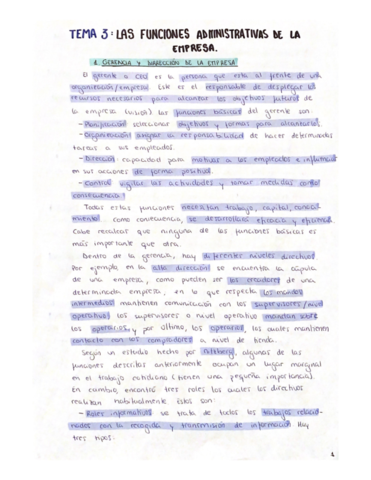 TEMA 3: LAS FUNCIONES ADMINISTRATIVAS DE LA
EMPRESA.
1. GERENCIA Y DIRECCIÓN DE LA EMPRESA
El gerente o CEO es la persona que esta al frente de una
organización/empresa. Este es el responsable de desplegar los
recursos necesarios para alcanzar los objetivos futuros de
la empresa (visión). Las funciones básicas del gerente son:
- Planificación: seleccionar objetivos y formas para alcanzarlos.
- Organización: asignar la responsabilidad de hacer determinadas
tareas a los empleados.
- Dirección: capacidad para motivar a los empleados e influenciar
en sus acciones de forma positiva.
- Control: vigilar las actividades y tomar medidas como
consecuencia.
Todas estas funciones necesitan trabajo, capital, conoci-
miento. Como consecuencia, se desarrollan eficacia y eficiencia.
Cabe recalcar que ninguna de las funciones básicas es
más importante que otra.
Dentro de la gerencia, hay diferentes niveles directivos.
Por ejemplo en la alta dirección se encuentra la cúpula
de una empresa, como pueden ser los creadores de una
determinada empresa, en lo que respecta los mandos
intermedios mantienen comunicación con los supervisores/nivel
operativo, los supervisores o nivel operativo mandan sobre
los operarios y por último, los operarios, los cuales mantienen
contacto con los compradores a nivel de tienda.
Según un estudio hecho por Mintzberg, algunas de las
funciones descritas anteriormente ocupan un lugar marginal
en el trabajo cotidiano (tienen una pequeña importancia).
En cambio, encontró tres roles los cuales los directivos
realizan habitualmente. Estos son:
- Roles informativos: se trata de todos los trabajos relacio-
nados con la recogida y transmisión de información. Hay
tres tipos:
1